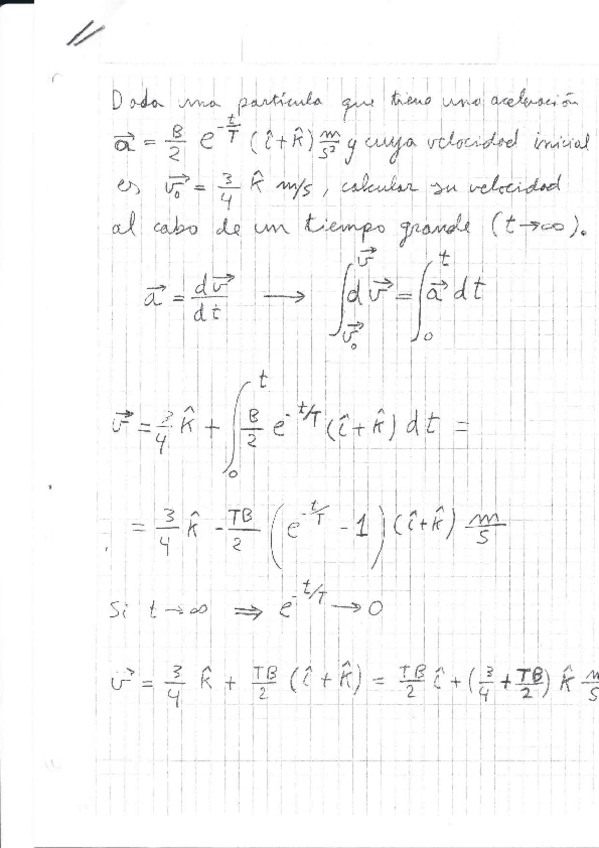 Dada una partícula que tiene una aceleración
a⃗ = B/2 e^(-t/T) (î+k̂) m/s² y cuya velocidad inicial
es v₀⃗ = 3/4 k̂ m/s, calcular su velocidad
al cabo de un tiempo grande (t→∞).
a⃗ = dv⃗/dt ⟶ ∫_v₀⃗^v⃗ dv⃗ = ∫_0^t a⃗ dt
v⃗ = 3/4 k̂ + ∫_0^t B/2 e^(-t/T) (î+k̂) dt =
= 3/4 k̂ - TB/2 (e^(-t/T) - 1) (î+k̂) m/s
Si t→∞ ⇒ e^(-t/T) → 0
v⃗ = 3/4 k̂ + TB/2 (î + k̂) = TB/2 î + (3/4 + TB/2) k̂ m/s